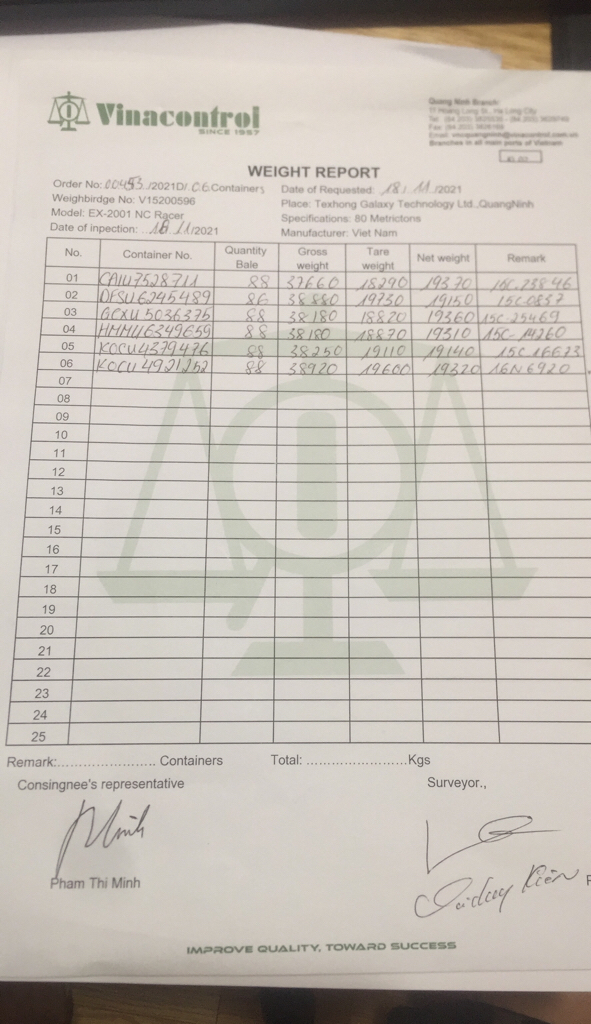 Vinacontrol
SINCE 1957
Quang Ninh Branch:
Branches in all main ports of Vietnam
WEIGHT REPORT
Order No: 00453 /2021D/ 06 Containers
Date of Requested: 18/ 11 /2021
Weighbirdge No: V15200596
Place: Texhong Galaxy Technology Ltd.,QuangNinh
Model: EX-2001 NC Racer
Specifications: 80 Metrictons
Date of inpection: 18 11/2021
Manufacturer: Viet Nam
No. Container No. Quantity Bale Gross weight Tare weight Net weight Remark
01 CAIU7528711 88 37660 18290 19370 15C-23846
02 DFSU6245489 86 38880 19730 19150 15C-0837
03 GCXU5036375 88 38180 18820 19360 15C-25469
04 HMMU6349659 88 38180 18870 19310 15C-14260
05 KOCU4379476 88 38250 19110 19140 15C 16673
06 KOCU4921252 88 38920 19600 19320 16N 6920
07
08
09
10
11
12
13
14
15
16
17
18
19
20
21
22
23
24
25
Remark:........................ Containers Total: .........................Kgs
Consingnee's representative Surveyor.,
Minh
Pham Thi Minh
IMPROVE QUALITY, TOWARD SUCCESS